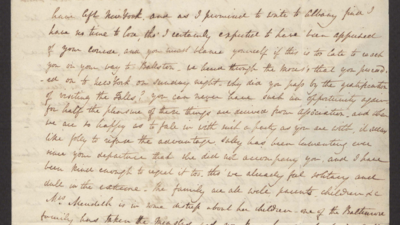 have left New York, and as I promised to write to Albany find I
have no time to lose tho I certainly expected to have been apprised
of your course, and you must blame yourself if this is to late to reach
you on your way to Ballston. we heard through the that you
on to New York on Sunday night, why did you pass by the gratification
of visiting the Falls? you can never have such an opportunity again
for half the pleasure of these things are derived from association, and when
we are so happy as to fall in with such a party as you are with, it seems
like folly to refuse the advantage. Sally has been lamenting ever
since your departure that she did not accompany you, and I have
been weak enough to regret it too, tho we already feel solitary and
dull in the extreme. the family are all well parents children &c
Mrs Meredith is in some distress about her children. one of the Baltimore
family has taken the Measles and